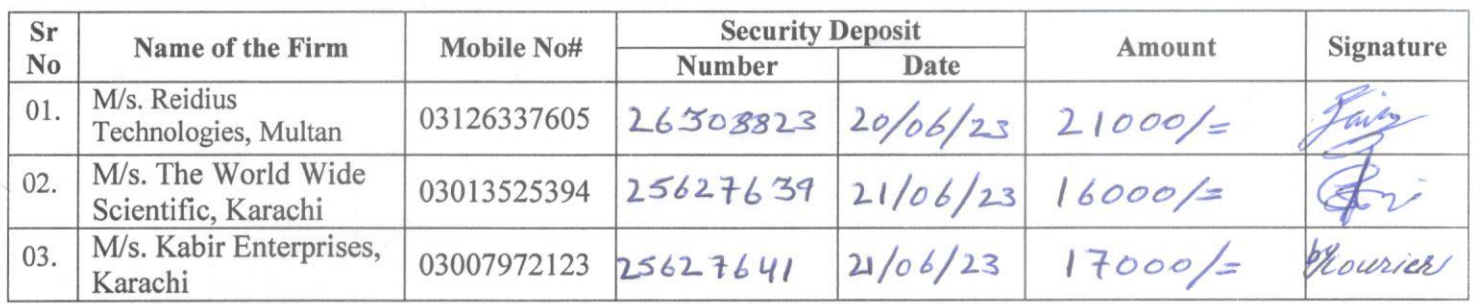 Sr No Name of the Firm Mobile No# Security Deposit Amount Signature
Number Date
01. M/s. Reidius Technologies, Multan 03126337605 26308823 20/06/23 21000/=
02. M/s. The World Wide Scientific, Karachi 03013525394 25627639 21/06/23 16000/=
03. M/s. Kabir Enterprises, Karachi 03007972123 25627641 21/06/23 17000/= by Courier